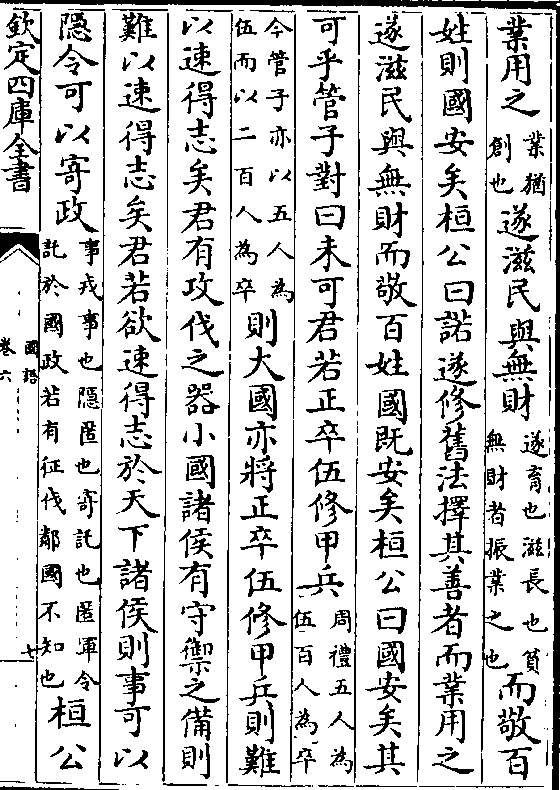 業用之業猶創也遂滋民與無財遂育也滋長也貧無財者振業之也而敬百
姓則國安矣桓公曰諾遂修舊法擇其善者而業用之
遂滋民與無財而敬百姓國既安矣桓公曰國安矣其
可乎管子對曰未可君若正卒伍修甲兵周禮五人為伍百人為卒
今管子亦以五人為伍而以二百人為卒則大國亦將正卒伍修甲兵則難
以速得志矣君有攻伐之器小國諸侯有守禦之備則
難以速得志矣君若欲速得志於天下諸侯則事可以
隱令可以寄政事戎事也隱匿也寄託也匿軍令託於國政若有征伐鄰國不知也桓公
欽定四庫全書
國語
卷六
七